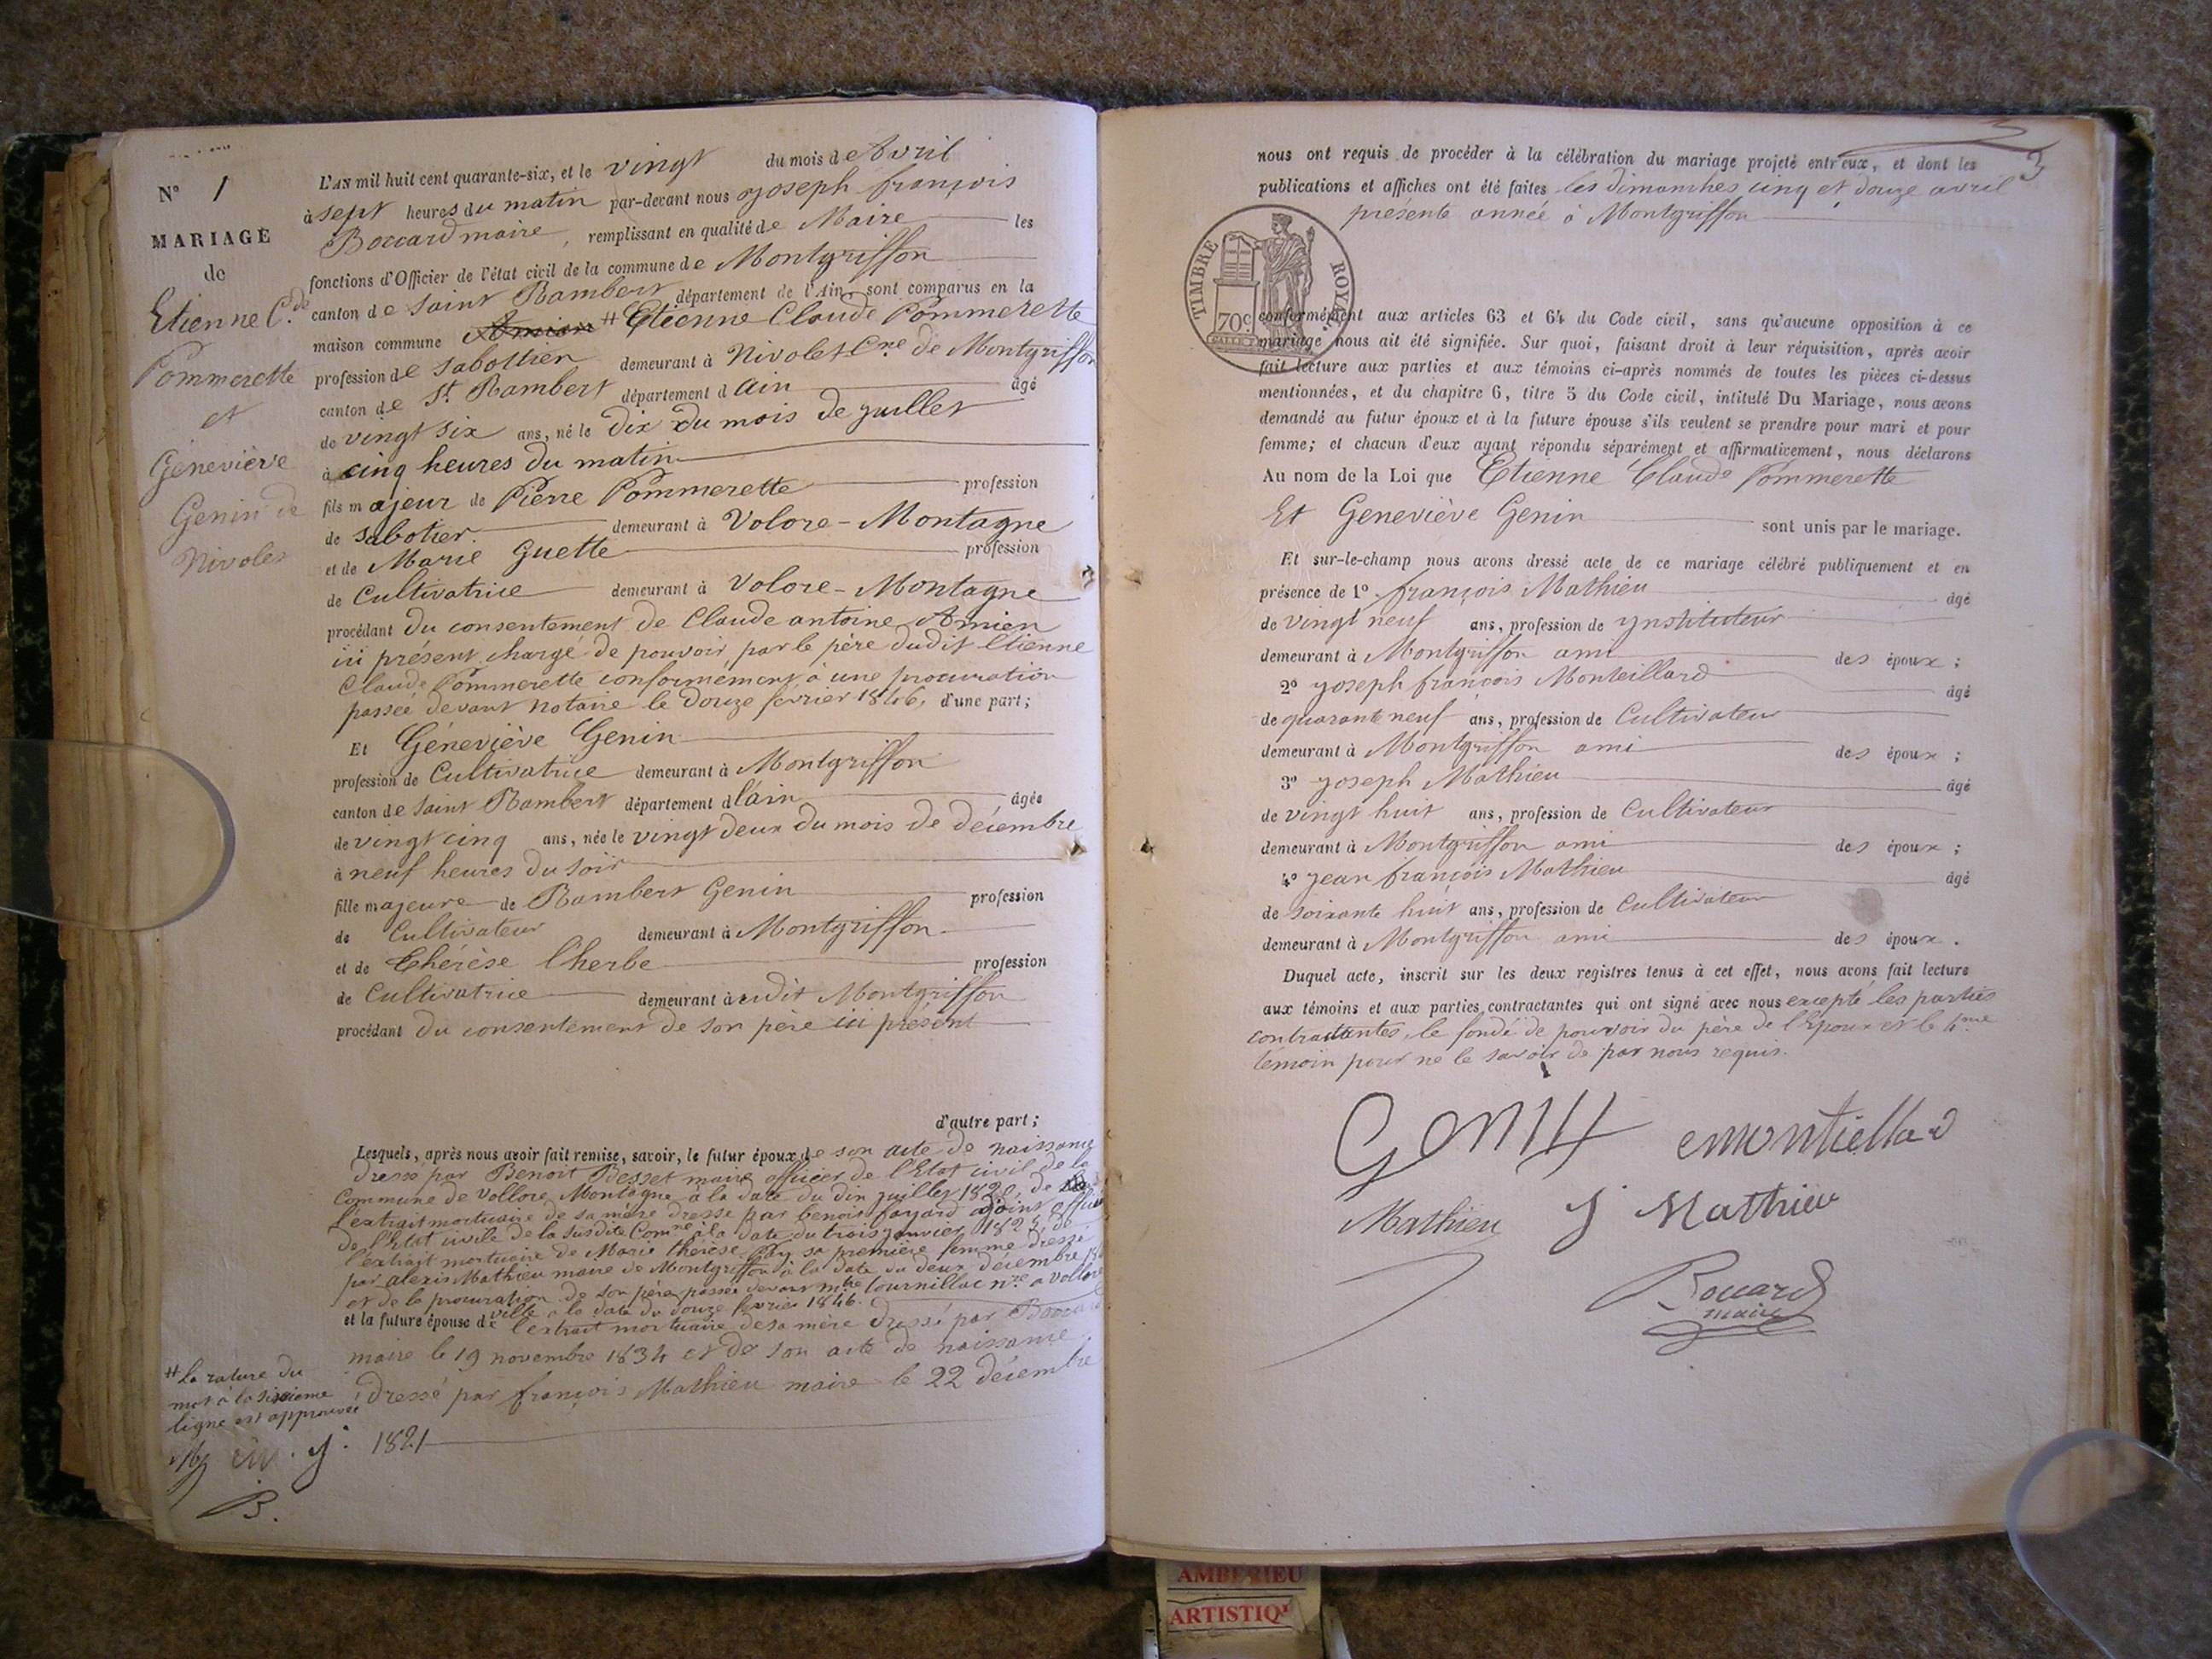 N° 1
MARIAGE
de
Etienne C.de
Pommerette
et
Géneviève
Genin de
Nivolet
L'AN mil huit cent quarante-six, et le vingt du mois de Avril
à sept heures du matin par-devant nous Joseph françois
Boccard maire, remplissant en qualité de Maire les
fonctions d'Officier de l'état civil de la commune de Montgriffon
canton de Saint Rambert département de l'Ain, sont comparus en la
maison commune # Etienne Claude Pommerette
profession de Sabottier demeurant à Nivolet Cne de Montgriffon
canton de St Rambert département d Ain âgé
de vingt six ans, né le dix du mois de juillet
à cinq heures du matin
fils majeur de Pierre Pommerette profession
de sabotier demeurant à Volore-Montagne
et de Marie Guette profession
de Cultivatrice demeurant à Volore-Montagne
procédant du consentement de Claude antoine Amien
ici présent chargé de pouvoir par le père dudit Etienne
Claude Pommerette conformément à une procuration
passée devant notaire le douze février 1846, d'une part;
Et Géneviève Genin
profession de Cultivatrice demeurant à Montgriffon
canton de Saint Rambert département d l'ain âgée
de vingt cinq ans, née le vingt deux du mois de décembre
à neuf heures du soir
fille majeure de Rambert Genin profession
de Cultivateur demeurant à Montgriffon
et de Thérèse l'herbe profession
de Cultivatrice demeurant à udit Montgriffon
procédant du consentement de son père ici présent
d'autre part;
Lesquels, après nous avoir fait remise, savoir, le futur époux de son acte de naissance
dressé par Benoit Besset maire officier de l'Etat civil de la
Commune de Vollore Montagne à la date du dix juillet 1820, de
l'extrait mortuaire de sa mère dresse par benoit fayard adjoint officier
de l'Etat civile de la susdite Comne à la date du trois janvier 1825, de
l'extrait mortuaire de Marie thérèse sa première femme dressé
par alexis Mathieu maire de Montgriffon à la date du deux décembre
et de la procuration de son père passée devant mtre tournillac nre a Vollore
ville à la date du douze fevrier 1846.
et la future épouse de l'extrait mortuaire de sa mère dressé par Boccard
maire le 19 novembre 1834 et de son acte de naissance
dressé par françois Mathieu maire le 22 décembre
1821
# La rature du
mot à la sixième
ligne est approuvée
B.
3
nous ont requis de procéder à la célébration du mariage projeté entr'eux, et dont les
publications et affiches ont été faites les dimanches cinq et douze avril
présente année à Montgriffon
TIMBRE ROYAL
70c
conformément aux articles 63 et 64 du Code civil, sans qu'aucune opposition à ce
mariage nous ait été signifiée. Sur quoi, faisant droit à leur réquisition, après avoir
fait lecture aux parties et aux témoins ci-après nommés de toutes les pièces ci-dessus
mentionnées, et du chapitre 6, titre 5 du Code civil, intitulé Du Mariage, nous avons
demandé au futur époux et à la future épouse s'ils veulent se prendre pour mari et pour
femme; et chacun d'eux ayant répondu séparément et affirmativement, nous déclarons
Au nom de la Loi que Etienne Claude Pommerette
Et Geneviève Genin sont unis par le mariage.
Et sur-le-champ nous avons dressé acte de ce mariage célébré publiquement et en
présence de 1° françois Mathieu âgé
de vingt neuf ans, profession de ynstituteur
demeurant à Montgriffon ami des époux;
2° Joseph françois Monteillard âgé
de quarante neuf ans, profession de Cultivateur
demeurant à Montgriffon ami des époux;
3° Joseph Mathieu âgé
de vingt huit ans, profession de Cultivateur
demeurant à Montgriffon ami des époux;
4° Jean françois Mathieu âgé
de soixante huit ans, profession de Cultivateur
demeurant à Montgriffon ami des époux.
Duquel acte, inscrit sur les deux registres tenus à cet effet, nous avons fait lecture
aux témoins et aux parties contractantes qui ont signé avec nous excepté les parties
contractantes, le fondé de pouvoir du père de l'Epoux et le 4me
témoin pour ne le savoir de par nous requis.
Mathieu J Mathieu
Boccard
maire
AMBERIEU
ARTISTIQ